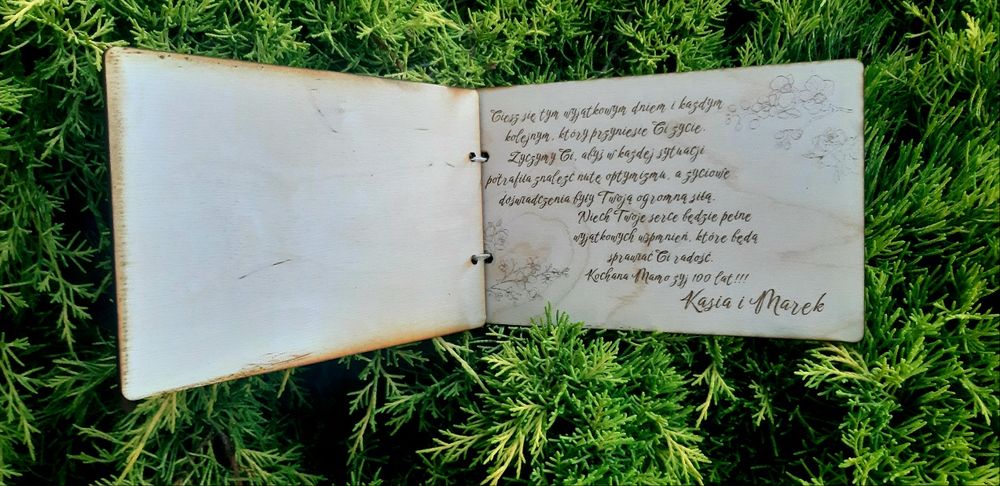 Ciesz się tym wyjątkowym dniem i każdym
kolejnym, który przyniesie Ci życie.
Życzymy Ci, abyś w każdej sytuacji
potrafiła znaleźć nutę optymizmu, a życiowe
doświadczenia były Twoją ogromną siłą.
Niech Twoje serce będzie pełne
wyjątkowych wspmnień, które będą
sprawiać Ci radość.
Kochana Mamo żyj 100 lat!!!
Kasia i Marek